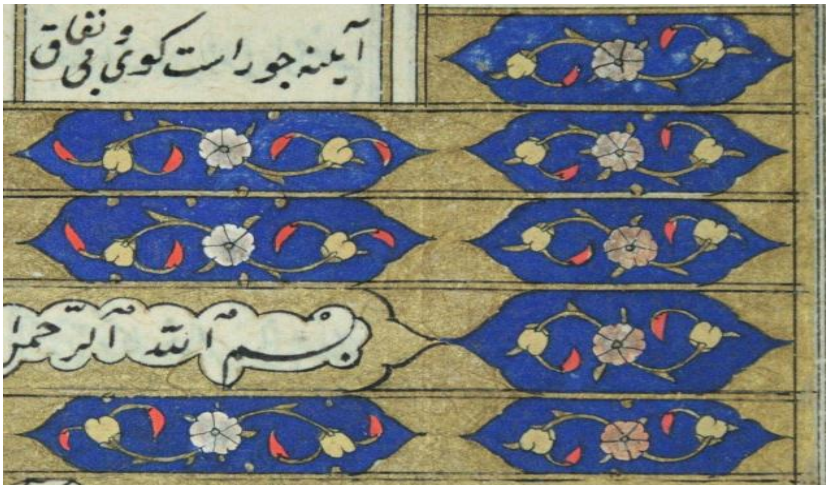 آینه جو راست کوی و بی نفاق
بسم الله الرحمن